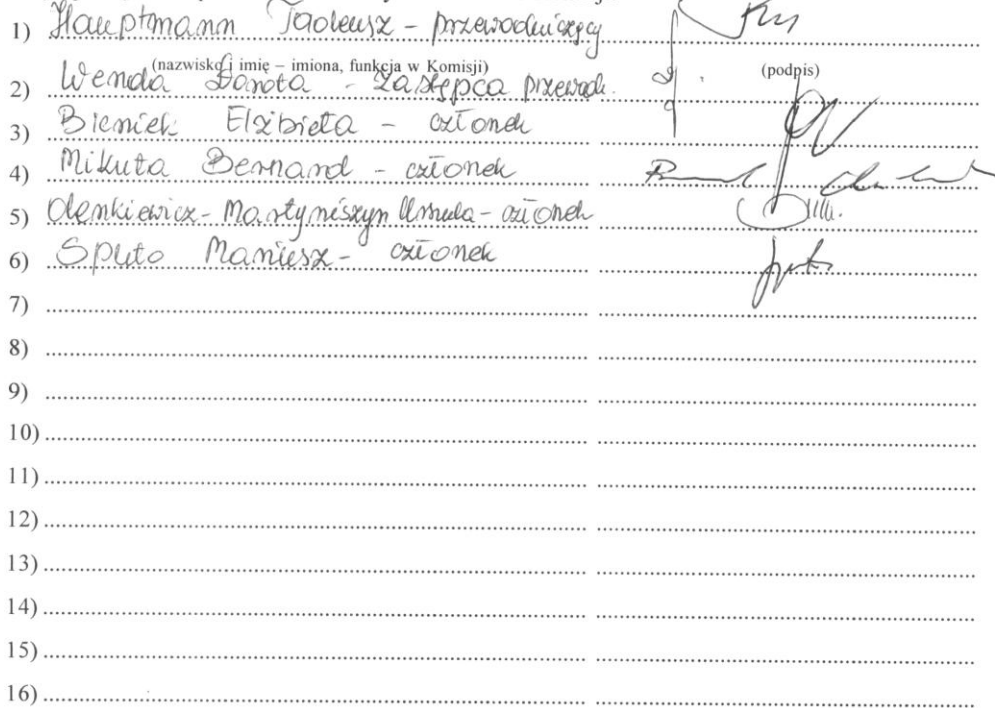 1) Hauptmann Tadeusz – przewodniczący
(nazwisko i imię – imiona, funkcja w Komisji) (podpis)
2) Wenda Dorota – zastępca przewodn.
3) Bieniek Elżbieta – członek
4) Mikuta Bernard – członek
5) Olenkiewicz-Martyniszyn Urszula – członek
6) Sputo Mariusz – członek
7)
8)
9)
10)
11)
12)
13)
14)
15)
16)